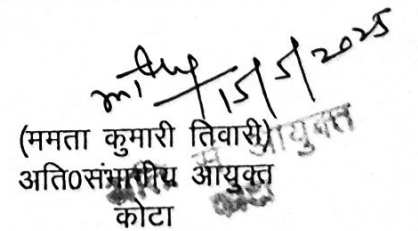 15/5/2025
(ममता कुमारी तिवारी)
अति0संभागीय आयुक्त
कोटा